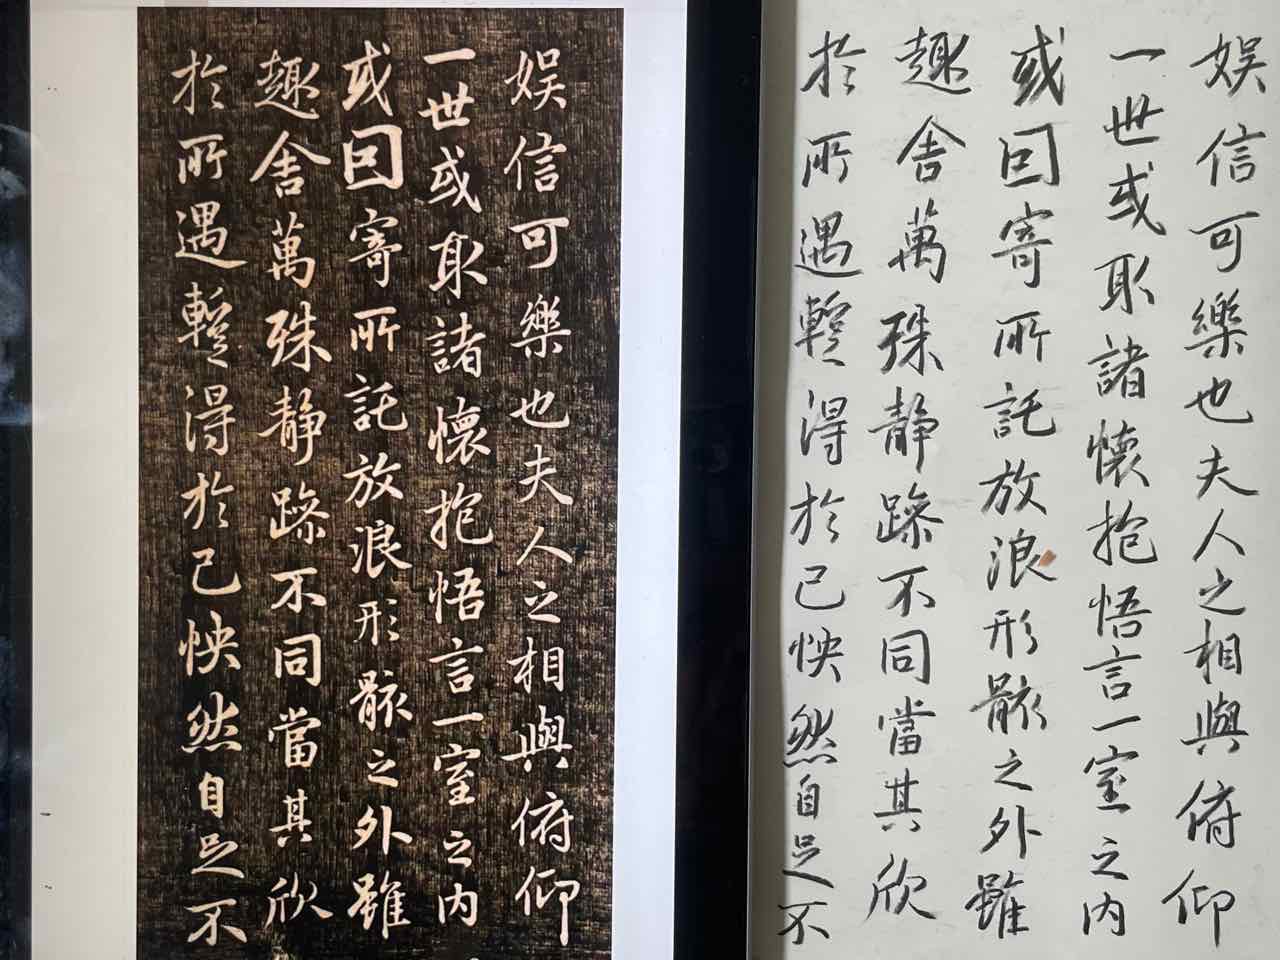 娛信可樂也夫人之相與俯仰
一世或取諸懷抱悟言一室之内
或因寄所託放浪形骸之外雖
趣舍萬殊静躁不同當其欣
於所遇暫得於己怏然自足不
娛信可樂也夫人之相與俯仰
一世或取諸懷抱悟言一室之内
或因寄所託放浪形骸之外雖
趣舍萬殊静躁不同當其欣
於所遇暫得於己怏然自足不